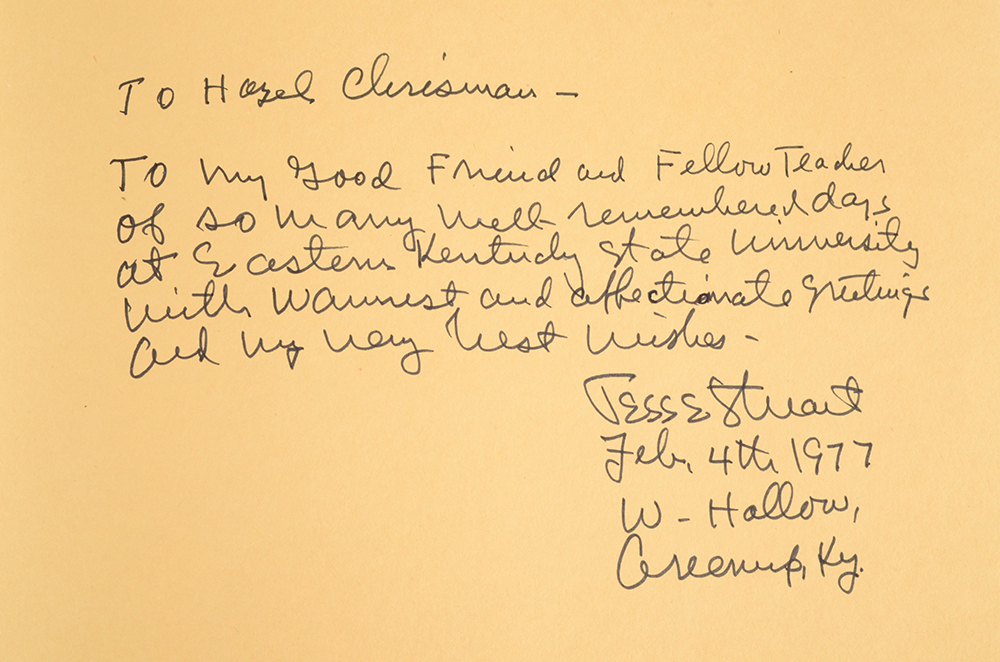 To Hazel Chrisman -
To my Good Friend and Fellow Teacher
of so many well-remembered days
at Eastern Kentucky State University
with warmest and affectionate greetings
and my very best wishes -
Jesse Stuart
Feb. 4th, 1977
W-Hollow,
Greenup, Ky.